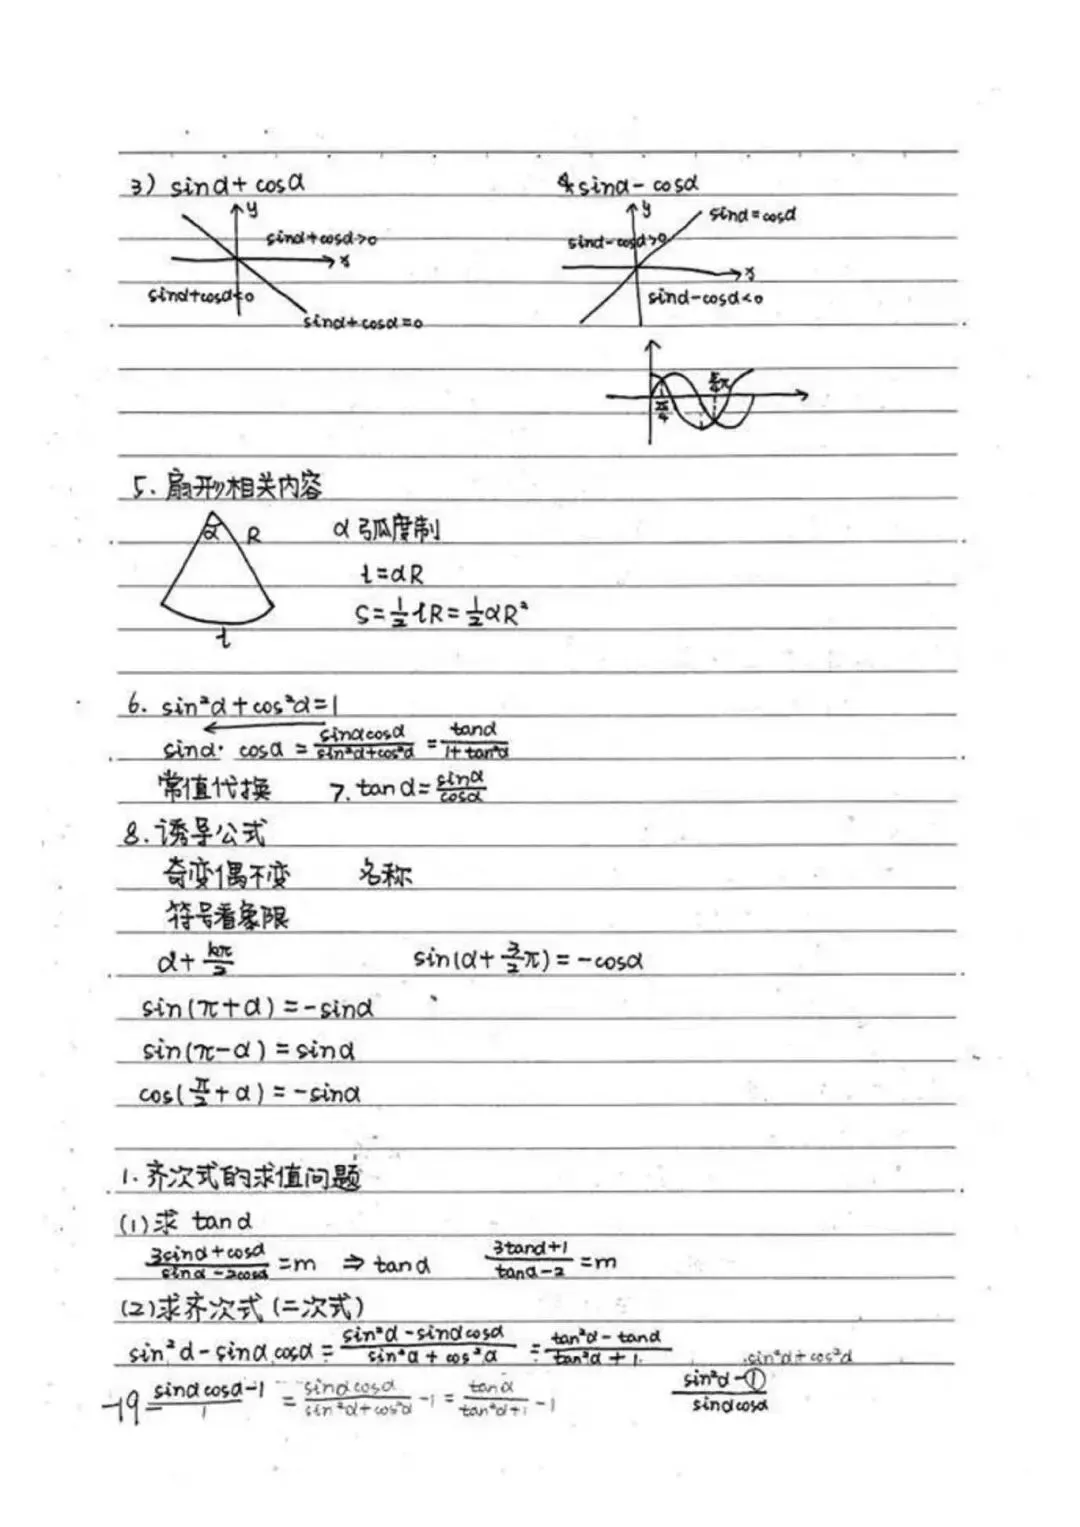 3) sinα+cosα
4. sinα-cosα
y
sinα+cosα>0
x
sinα+cosα<0
sinα+cosα=0
y
sinα=cosα
sinα-cosα>0
x
sinα-cosα<0
π/4
5/4π
5、扇形相关内容
α R
l
α弧度制
l=αR
S=1/2lR=1/2αR²
6. sin²α+cos²α=1
sinα·cosα=sinαcosα/(sin²α+cos²α)=tanα/(1+tan²α)
常值代换 7. tanα=sinα/cosα
8.诱导公式
奇变偶不变 名称
符号看象限
α+kπ/2 sin(α+3/2π)=-cosα
sin(π+α)=-sinα
sin(π-α)=sinα
cos(π/2+α)=-sinα
1.齐次式的求值问题
(1)求 tanα
(3sinα+cosα)/(sinα-2cosα)=m ⇒ tanα (3tanα+1)/(tanα-2)=m
(2)求齐次式(二次式)
sin²α-sinαcosα=(sin²α-sinαcosα)/(sin²α+cos²α)=(tan²α-tanα)/(tan²α+1)
sin²α+cos²α
(sin²α-①)/(sinαcosα)
(sinαcosα-1)/1=sinαcosα/(sin²α+cos²α)-1=tanα/(tan²α+1)-1